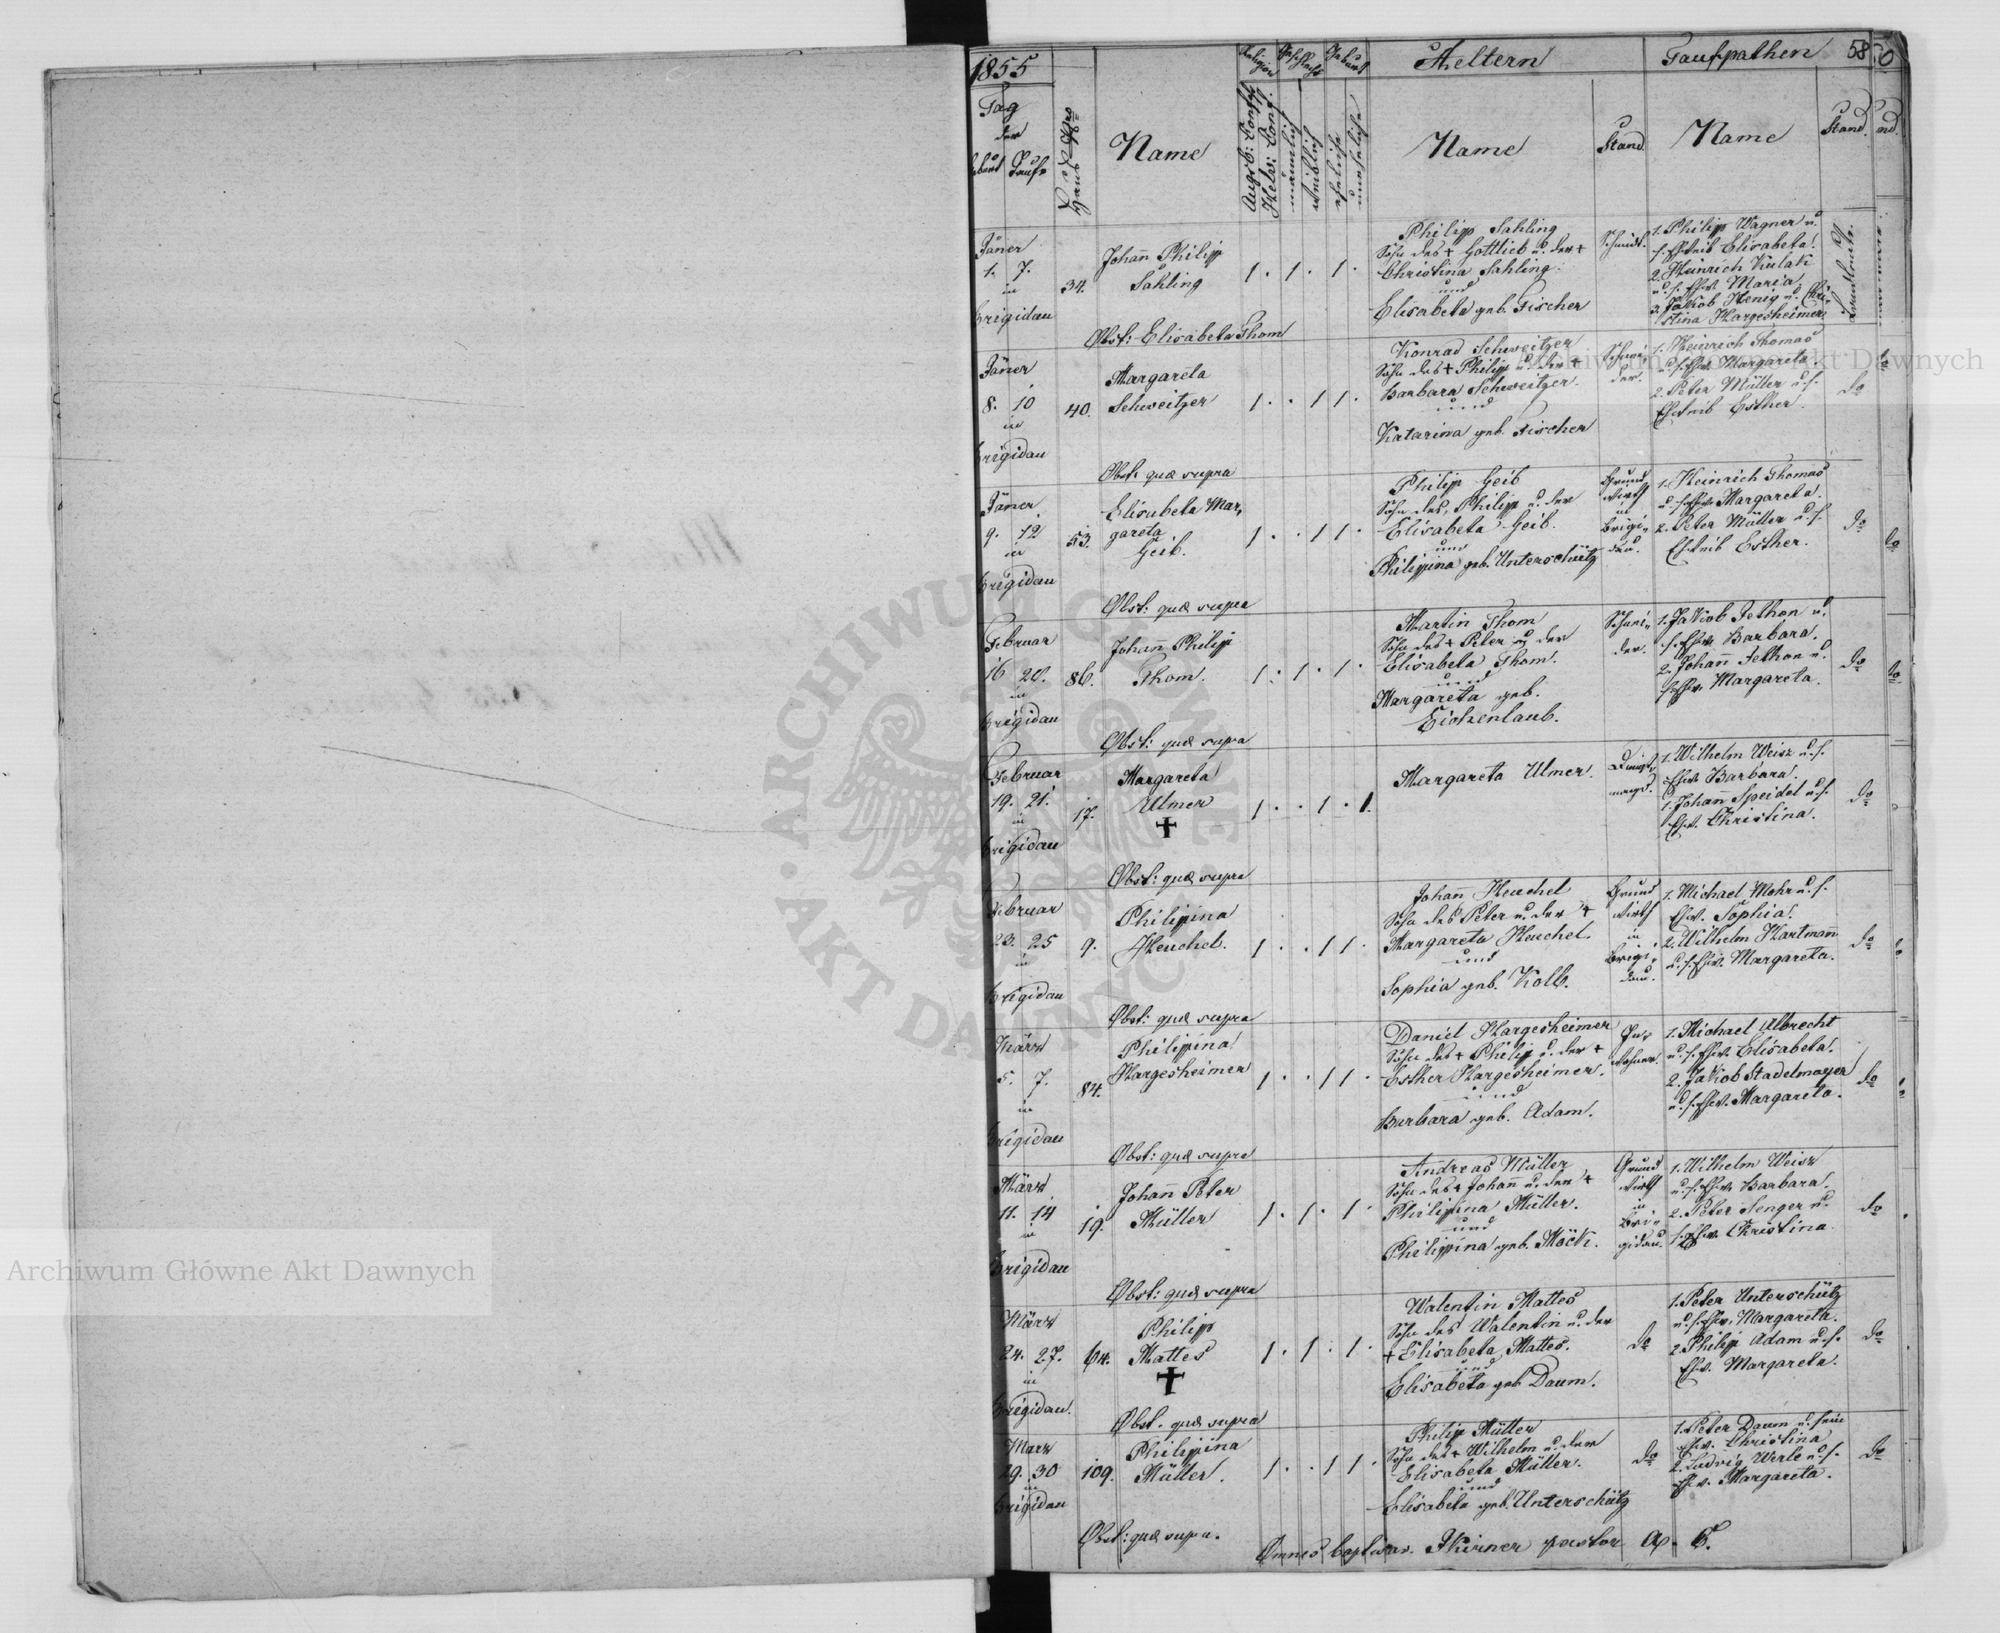 1855
Religion
Geschlecht
Geburt
Aeltern
Taufpathen
58
Tag
der
Geburt Taufe
Haus Nro
Name
Augsb: Conf:
Helv: Conf:
männlich
weiblich
eheliche
uneheliche
Name
Stand.
Name
Stand.
Jäner
1. 7.
in
Brigidau
34.
Johann Philipp
Sahling
1 . 1 . 1 .
Philipp Sahling
Sohn des + Gottlieb u. der +
Christina Sahling.
und
Elisabeta geb. Fischer
Schmidt.
1. Philipp Wagner u.
s. Eheweib Elisabeta.
2. Heinrich Kulak
u. s. Ehw. Maria,
3. Jakob Henig u. Chri-
stina Hargesheimer
Landleute.
Obst: Elisabeta Thom
Jäner
8. 10
in
Brigidau
40.
Margareta
Schweitzer
1 . . 1 1 .
Konrad Schweitzer
Sohn des + Philipp u. der +
Barbara Schweitzer.
und
Katarina geb. Fischer
Schnei-
der.
1. Heinrich Thomas
u. s. Ehw. Margareta
2. Peter Müller u. s.
Eheweib Esther.
do
Obst: quæ supra
Jäner
9. 12
in
Brigidau
53.
Elisabeta Mar-
gareta
Geib.
1 . . 1 1 .
Philipp Geib
Sohn des Philipp u. der
Elisabeta Geib.
und
Philippina geb. Unterschütz
Grund
wirth
in
Brigi-
dau.
1. Heinrich Thomas
u. s. Ehw. Margareta.
2. Peter Müller u. s.
Eheweib Esther.
do
Obst: quæ supra
Februar
16 20.
in
Brigidau
86.
Johann Philipp
Thom.
1 . 1 . 1 .
Martin Thom
Sohn des + Peter u. der
Elisabeta Thom.
und
Margareta geb.
Eichenlaub.
Schnei-
der.
1. Jakob Jethon u.
s. Ehw. Barbara.
2. Johann Jethon u.
s. Ehw. Margareta.
do
Obst: quæ supra
Februar
19. 21.
in
Brigidau
17.
Margareta
Ulmer
+
1 . . 1 . 1.
Margareta Ulmer.
Dienst-
magd.
1. Wilhelm Weisz u. s.
Ehw. Barbara.
1. Johann Speidel u. s.
Ehw. Christina.
do
Obst: quæ supra
Februar
23. 25
in
Brigidau
9.
Philippina
Heuchel.
1 . . 1 1 .
Johann Heuchel
Sohn des Peter u. der +
Margareta Heuchel.
und
Sophia geb. Kolb.
Grund
wirth
in
Brigi-
dau.
1. Michael Mohr u. s.
Ehw. Sophia.
2. Wilhelm Hartmann
u. s. Ehw. Margareta.
do
Obst: quæ supra
März
5. 7.
in
Brigidau
84.
Philippina
Hargesheimer
1 . . 1 1 .
Daniel Hargesheimer
Sohn des + Philipp u. der +
Esther Hargesheimer.
und
Barbara geb. Adam.
In-
wohner.
1. Michael Albrecht
u. s. Ehw. Elisabeta.
2. Jakob Stadelmayer
u. s. Ehw. Margareta.
do
Obst: quæ supra
März
11. 14
in
Brigidau
19.
Johann Peter
Müller
1 . 1 . 1 .
Andreas Müller
Sohn des + Johann u. der +
Philippina Müller.
und
Philippina geb. Möck.
Grund
wirth
in
Bri-
gidau.
1. Wilhelm Weisz
u. s. Ehw. Barbara.
2. Peter Senger u.
s. Ehw. Christina.
do
Obst: quæ supra
März
24. 27.
in
Brigidau.
64.
Philipp
Mattes
+
1 . 1 . 1 .
Walentin Mattes
Sohn des Walentin u. der
+ Elisabeta Mattes.
und
Elisabeta geb Daum.
do
1. Peter Unterschütz
u. s. Ehw. Margareta.
2. Philipp Adam u. s.
Ehw. Margareta.
do
Obst. quæ supra
März
29. 30
in
Brigidau
109.
Philippina
Müller.
1 . . 1 1 .
Philipp Müller
Sohn des + Wilhelm u. der
Elisabeta Müller.
und
Elisabeta geb. Unterschütz
do
1. Peter Daum u. sein
Ehw. Christina
2. Ludwig Werle u. s.
Ehw. Margareta.
do
Obst: quæ supra.
Omnes baptisav. Skirner pastor A. C.
Archiwum Główne Akt Dawnych
Archiwum Główne Akt Dawnych
ARCHIWUM GŁÓWNE
AKT DAWNYCH